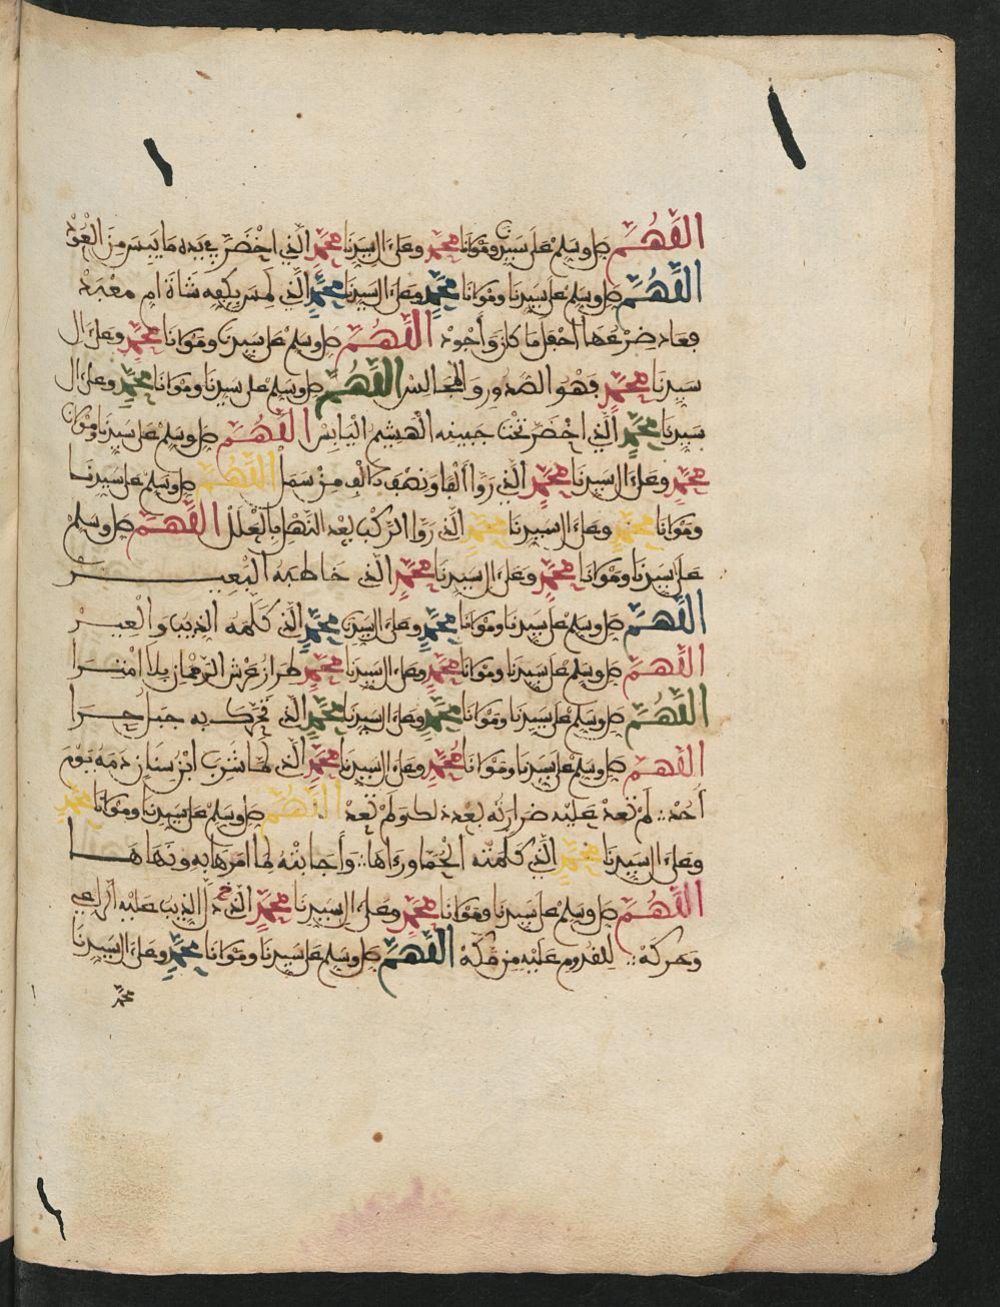 اللهم صل وسلم على سيدنا ومولانا محمد وعلى ال سيدنا محمد الذي اخضر في يده ما يبس من العود
اللهم صل وسلم على سيدنا ومولانا محمد وعلى ال سيدنا محمد الذي لمس بكفه شاة ام معبد
فعاد ضرعها احفل ما كان وأجود اللهم صل وسلم على سيدنا ومولانا محمد وعلى ال
سيدنا محمد فهو الصدور والمجالس اللهم صل وسلم على سيدنا ومولانا محمد وعلى ال
سيدنا محمد الذي اخضر تحت جبينه الهشيم اليابس اللهم صل وسلم على سيدنا ومولانا
محمد وعلى ال سيدنا محمد الذي روا ألفا ونصف الف من سمل اللهم صل وسلم على سيدنا
ومولانا محمد وعلى ال سيدنا محمد الذي روا الركب بعد النهل بالعلل اللهم صل وسلم
على سيدنا ومولانا محمد وعلى ال سيدنا محمد الذي خاطبه البعير
اللهم صل وسلم على سيدنا ومولانا محمد وعلى ال سيدنا محمد الذي كلمه الذيب والعير
اللهم صل وسلم على سيدنا ومولانا محمد وعلى ال سيدنا محمد طراز عرش الرحمان بلا امترا
اللهم صل وسلم على سيدنا ومولانا محمد وعلى ال سيدنا محمد الذي تحرك به جبل حرا
اللهم صل وسلم على سيدنا ومولانا محمد وعلى ال سيدنا محمد الذي لما شرب ابن سنان دمه يوم
أحد لم تعد عليه ضرارته بعد ذلك ولم تعد اللهم صل وسلم على سيدنا ومولانا محمد
وعلى ال سيدنا محمد الذي كلمته الحما وراءاها وأجابته لما امرها به ونهاها
اللهم صل وسلم على سيدنا ومولانا محمد وعلى ال سيدنا محمد الذي دل الذيب عليه الراعي
وحركه للقدوم عليه من مكة اللهم صل وسلم على سيدنا ومولانا محمد وعلى ال سيدنا
محمد